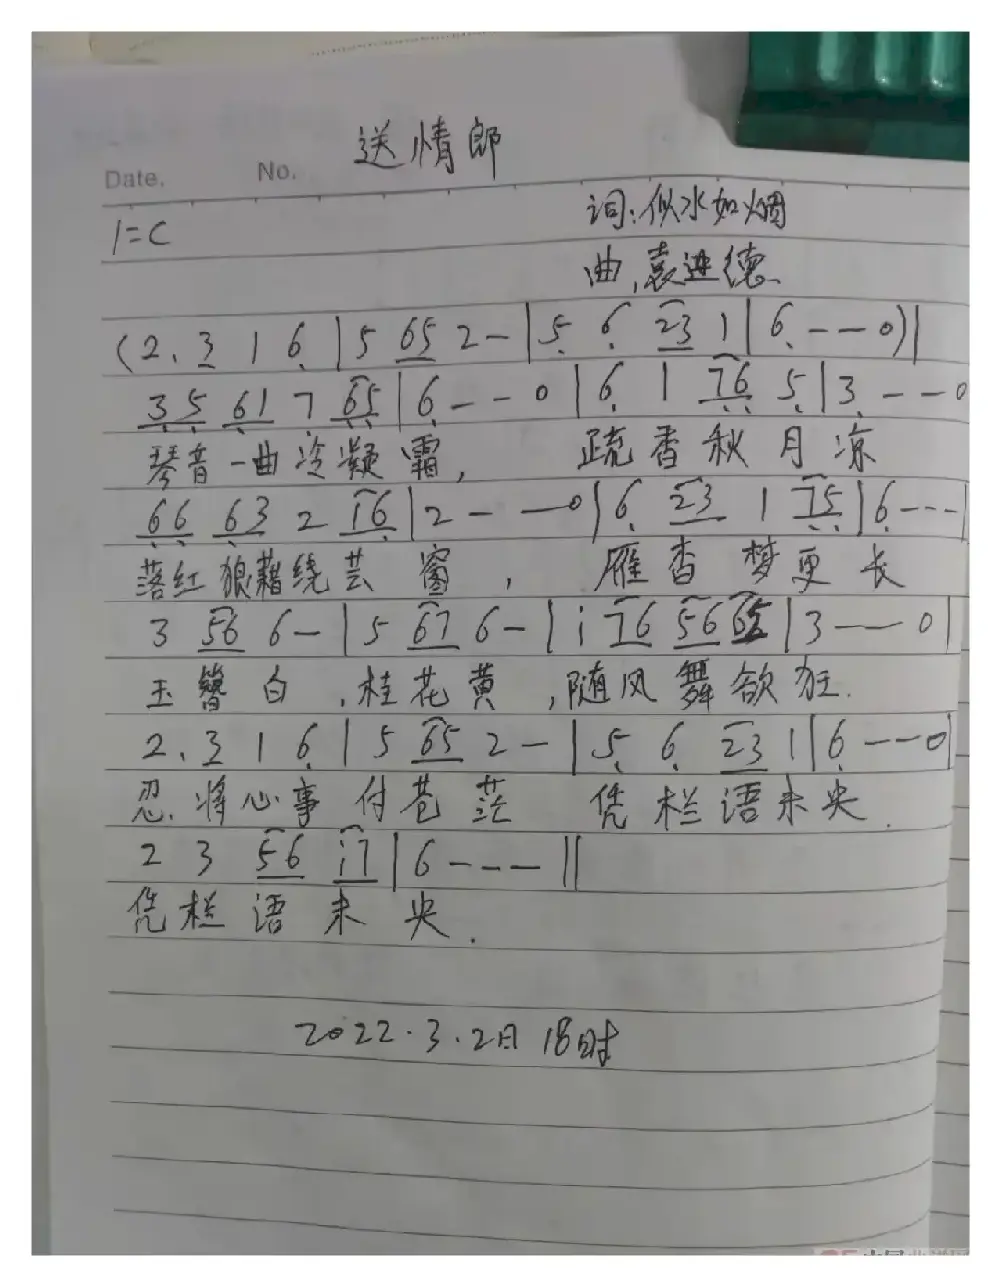 送情郎
Date. No.
词:似水如烟
1=C
曲,袁进德
(2. 3 1 6 | 5 65 2 - | 5 6 23 1 | 6 - - - 0) |
35 61 7 65 | 6 - - 0 | 6 1 76 5 | 3 - - 0
琴音一曲冷凝霜, 疏香秋月凉
66 63 2 16 | 2 - - 0 | 6 23 1 75 | 6 - - - |
落红狼藉绕芸窗, 雁杳梦更长
3 56 6 - | 5 67 6 - | i 76 56 65 | 3 - - 0 |
玉簪白,桂花黄,随风舞欲狂.
2. 3 1 6 | 5 65 2 - | 5 6 23 1 | 6 - - 0
忍将心事付苍茫 凭栏语未央.
2 3 56 i7 | 6 - - - ||
凭栏语未央.
2022.3.2日18时